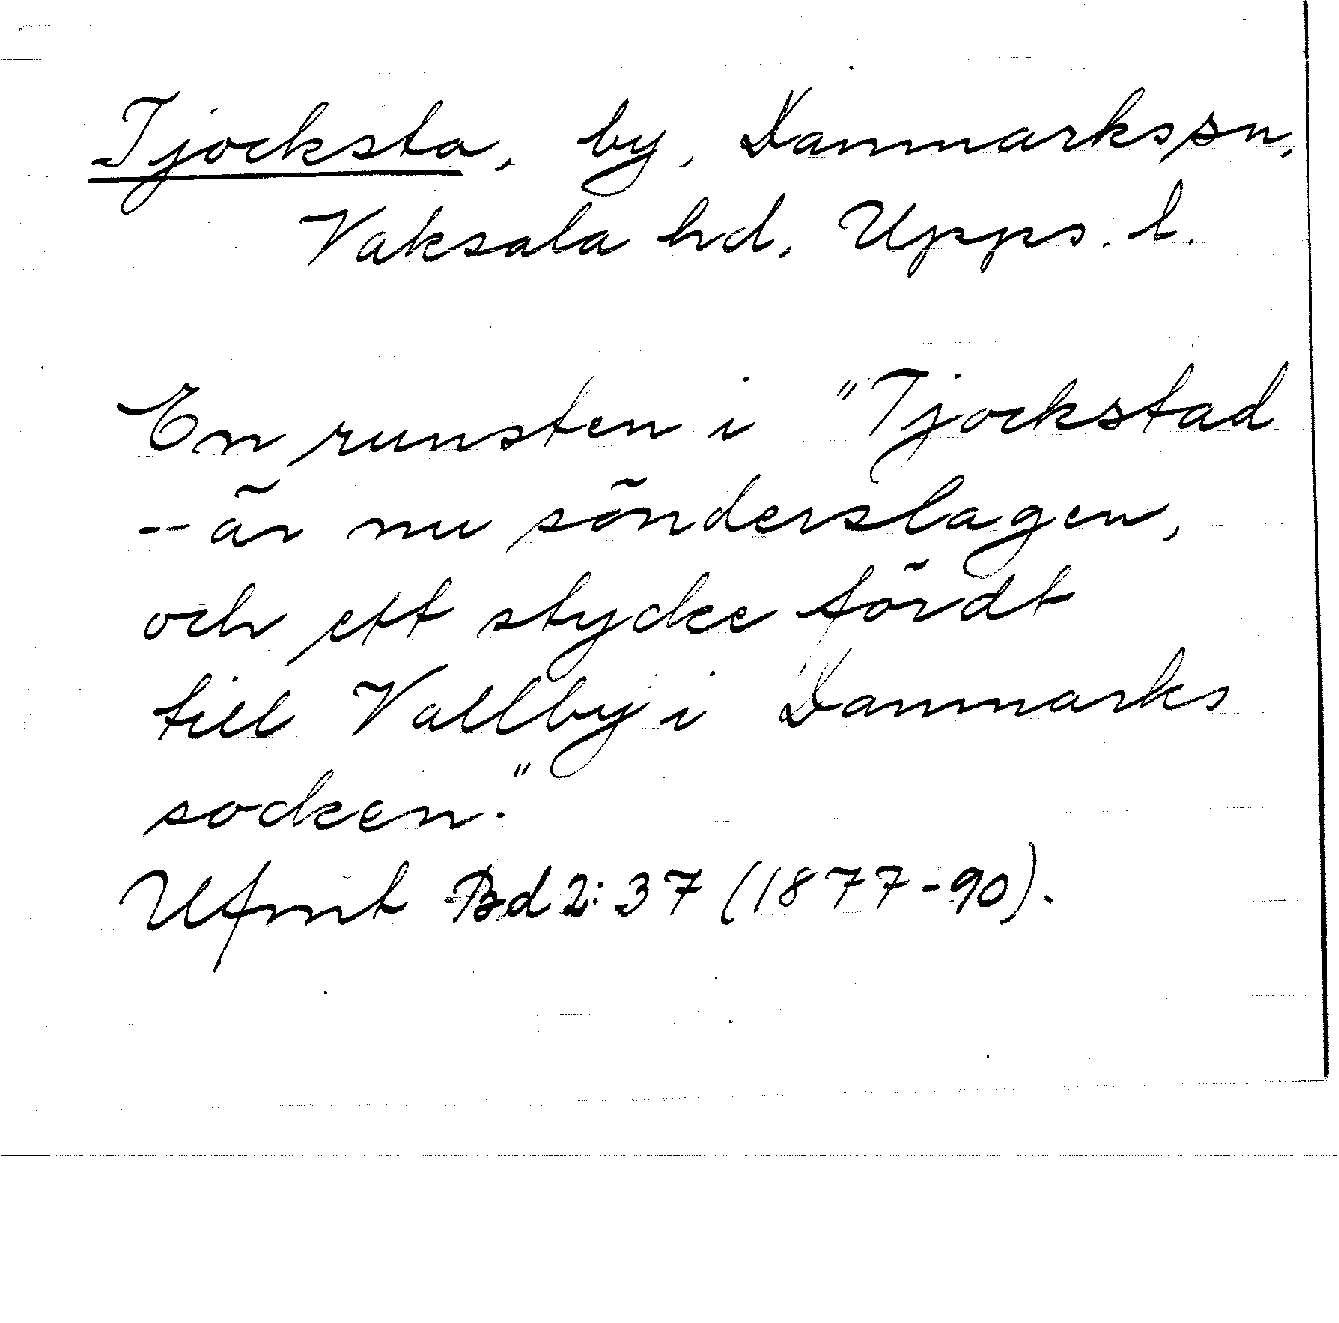 Tjocksta, by, Danmarks sn,
Vaksala hd, Upps. l.
En runsten i "Tjockstad
-- är nu sönderslagen,
och ett stycke fördt
till Vallby i Danmarks
socken."
Ufmt Bd 2: 37 (1877-90).